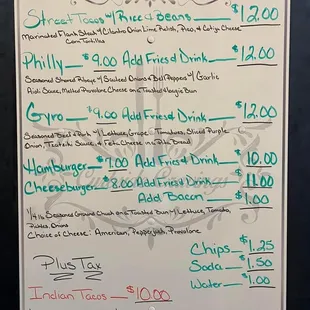 Street Tacos w/ Rice & Beans $12.00
Marinated Flank Steak w/ Cilantro Onion Lime Relish, Pico, & Cotija Cheese
Corn Tortillas
Philly $9.00 Add Fries & Drink $12.00
Seasoned Shaved Ribeye w/ Sauteed Onions & Bell Peppers w/ Garlic
Aioli Sauce, Melted Provolone Cheese and Toasted Hoagie Bun
Gyro $9.00 Add Fries & Drink $12.00
Seasoned Beef & Pork w/ Lettuce, Grape Tomatoes, Sliced Purple
Onion, Tzatziki Sauce, & Feta Cheese in a Pita Bread
Hamburger $7.00 Add Fries & Drink $10.00
Cheeseburger $8.00 Add Fries & Drink $11.00
Add Bacon $1.00
1/4 lb Seasoned Ground Chuck on a Toasted Bun w/ Lettuce, Tomato,
Pickles, Onions
Choice of Cheese: American, Pepperjack, Provolone
Chips $1.25
Plus Tax
Soda $1.50
Water $1.00
Indian Tacos $10.00